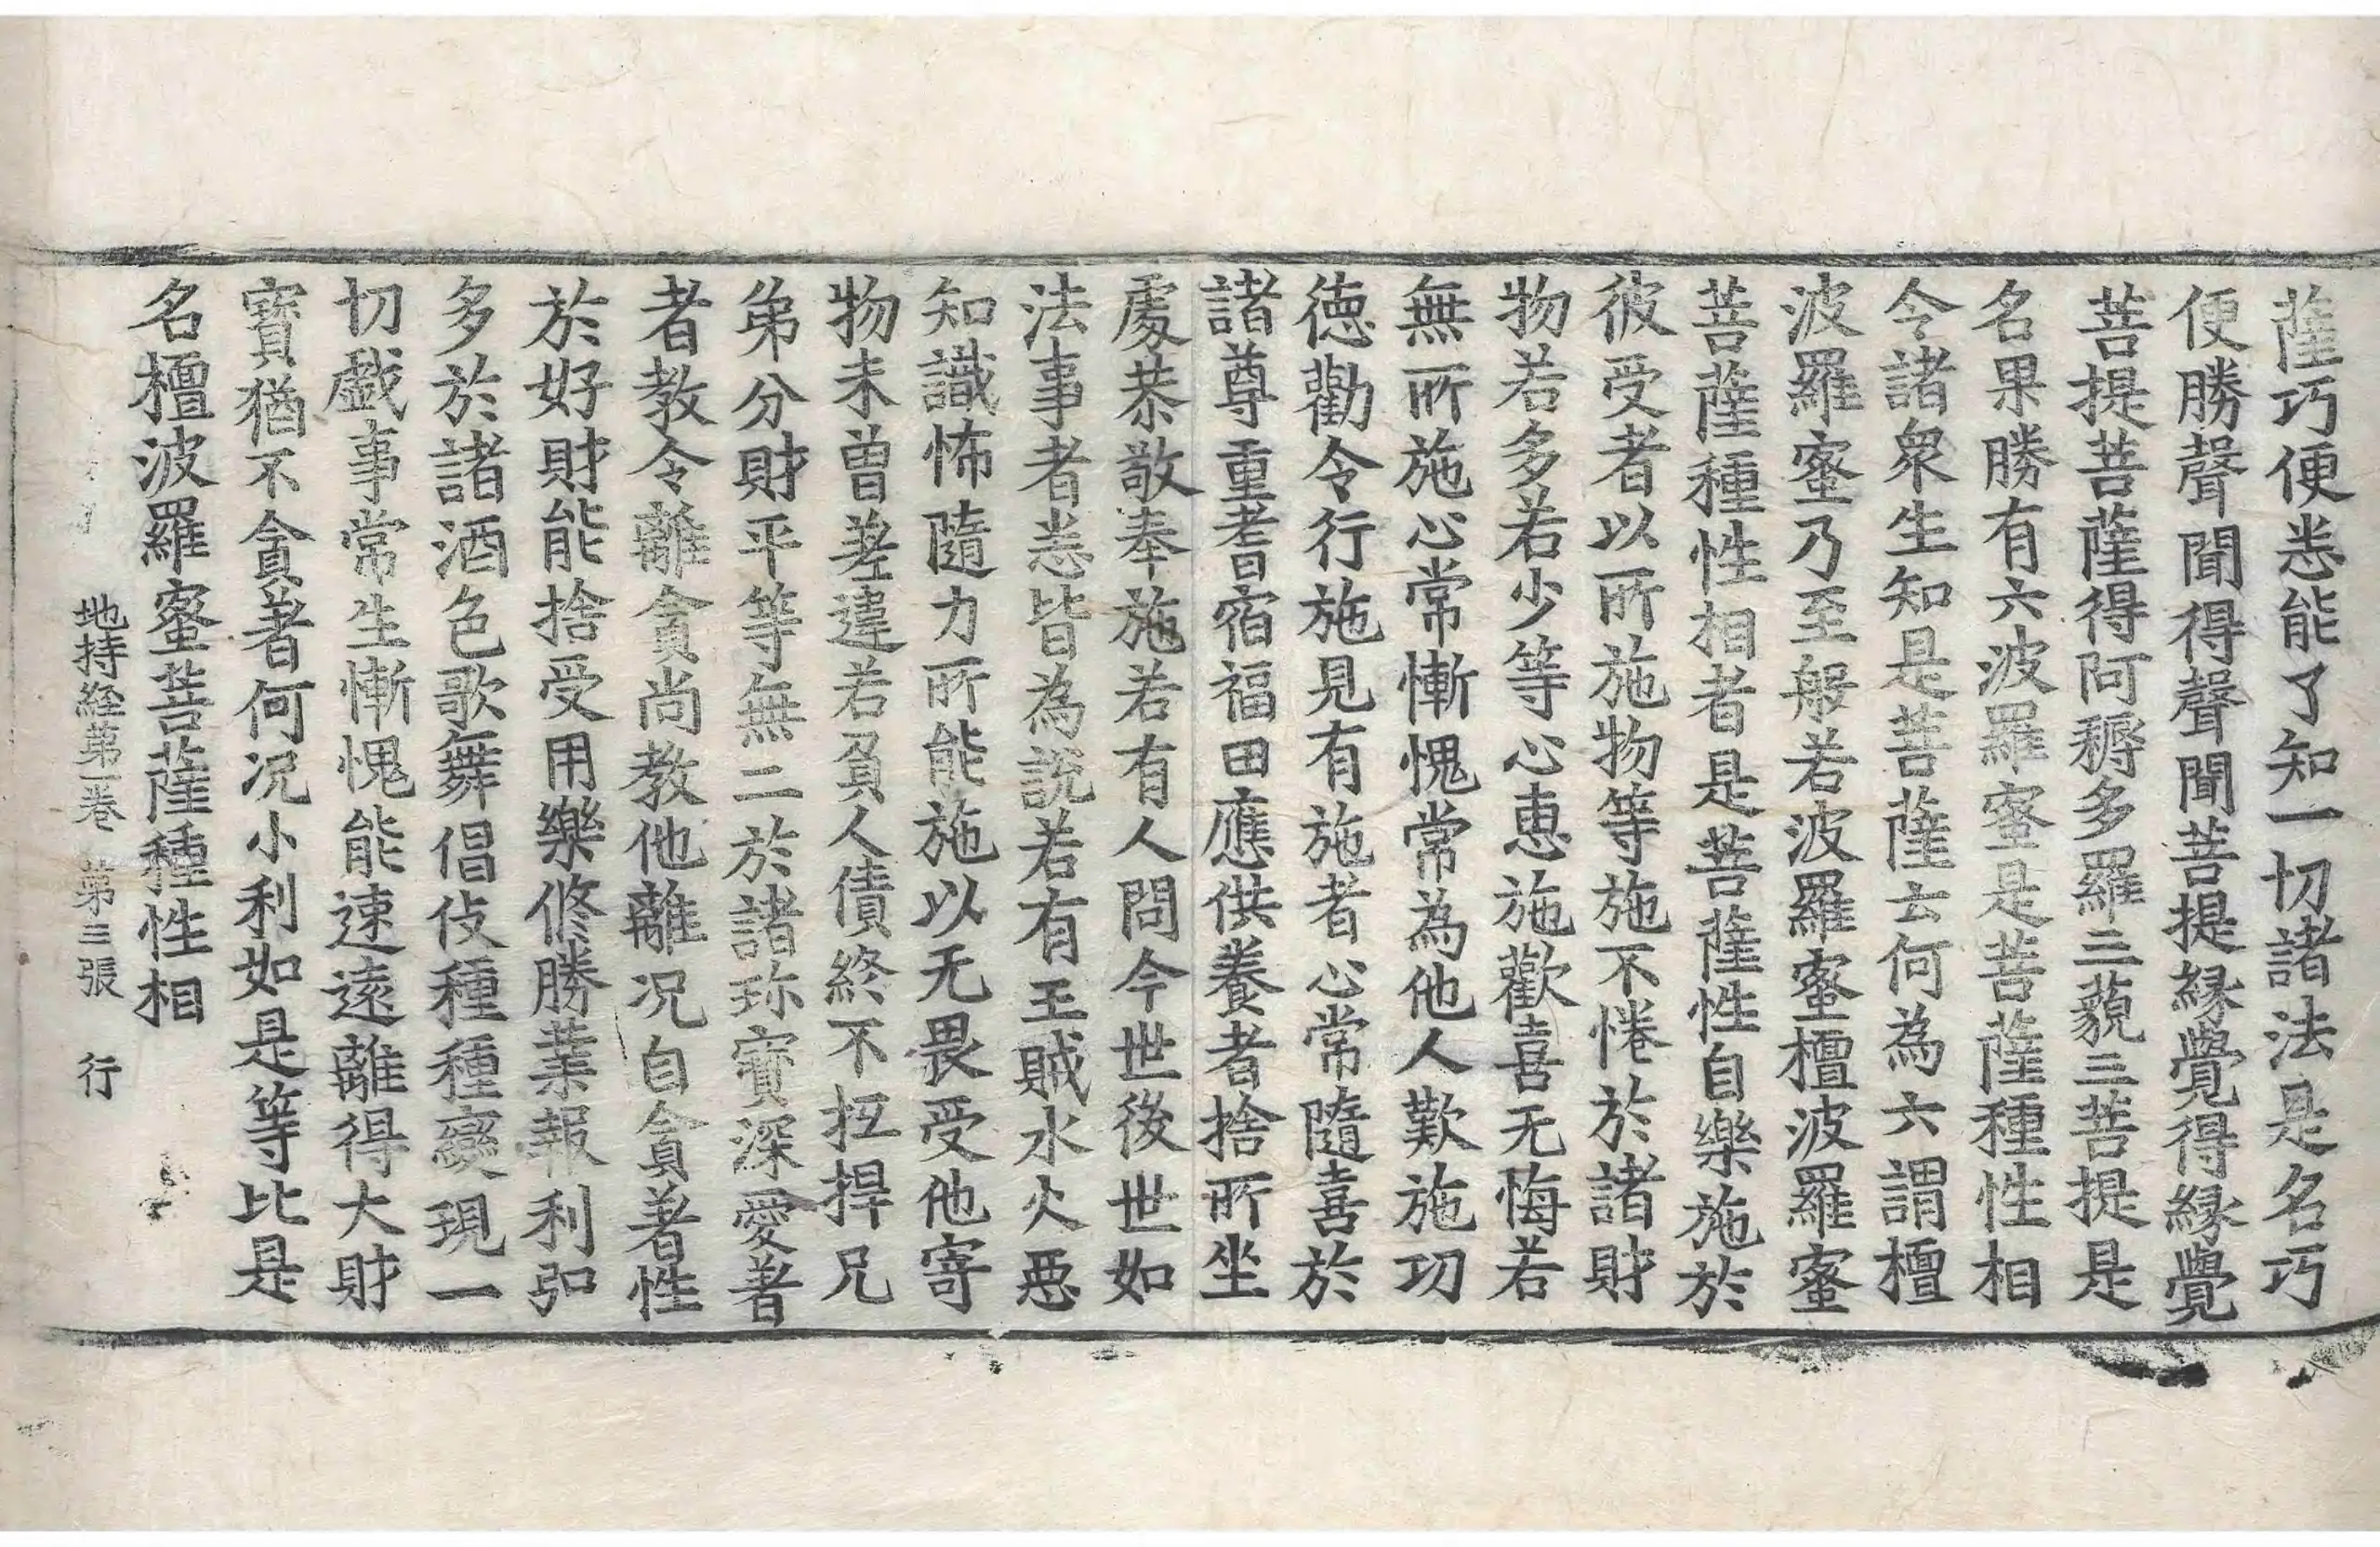 薩巧便悉能了知一切諸法是名巧
便勝聲聞得聲聞菩提縁覺得縁覺
菩提菩薩得阿耨多羅三藐三菩提是
名果勝有六波羅蜜是菩薩種性相
令諸衆生知是菩薩云何為六謂檀
波羅蜜乃至般若波羅蜜檀波羅蜜
菩薩種性相者是菩薩性自樂施於
彼受者以所施物等施不惓於諸財
物若多若少等心惠施歡喜无悔若
無所施心常慚愧常為他人歎施功
德勸令行施見有施者心常隨喜於
諸尊重耆宿福田應供養者捨所坐
處恭敬奉施若有人問今世後世如
法事者悉皆為說若有王賊水火惡
知識怖隨力所能施以无畏受他寄
物未曾差違若負人債終不抂捍兄
弟分財平等無二於諸珎寶深愛著
者教令離貪尚教他離况自貪著性
於好財能捨受用樂修勝業報利弘
多於諸酒色歌舞倡伎種種變現一
切戲事常生慚愧能速遠離得大財
寶猶不貪著何况小利如是等比是
名檀波羅蜜菩薩種性相
地持経第一卷　第三張　行